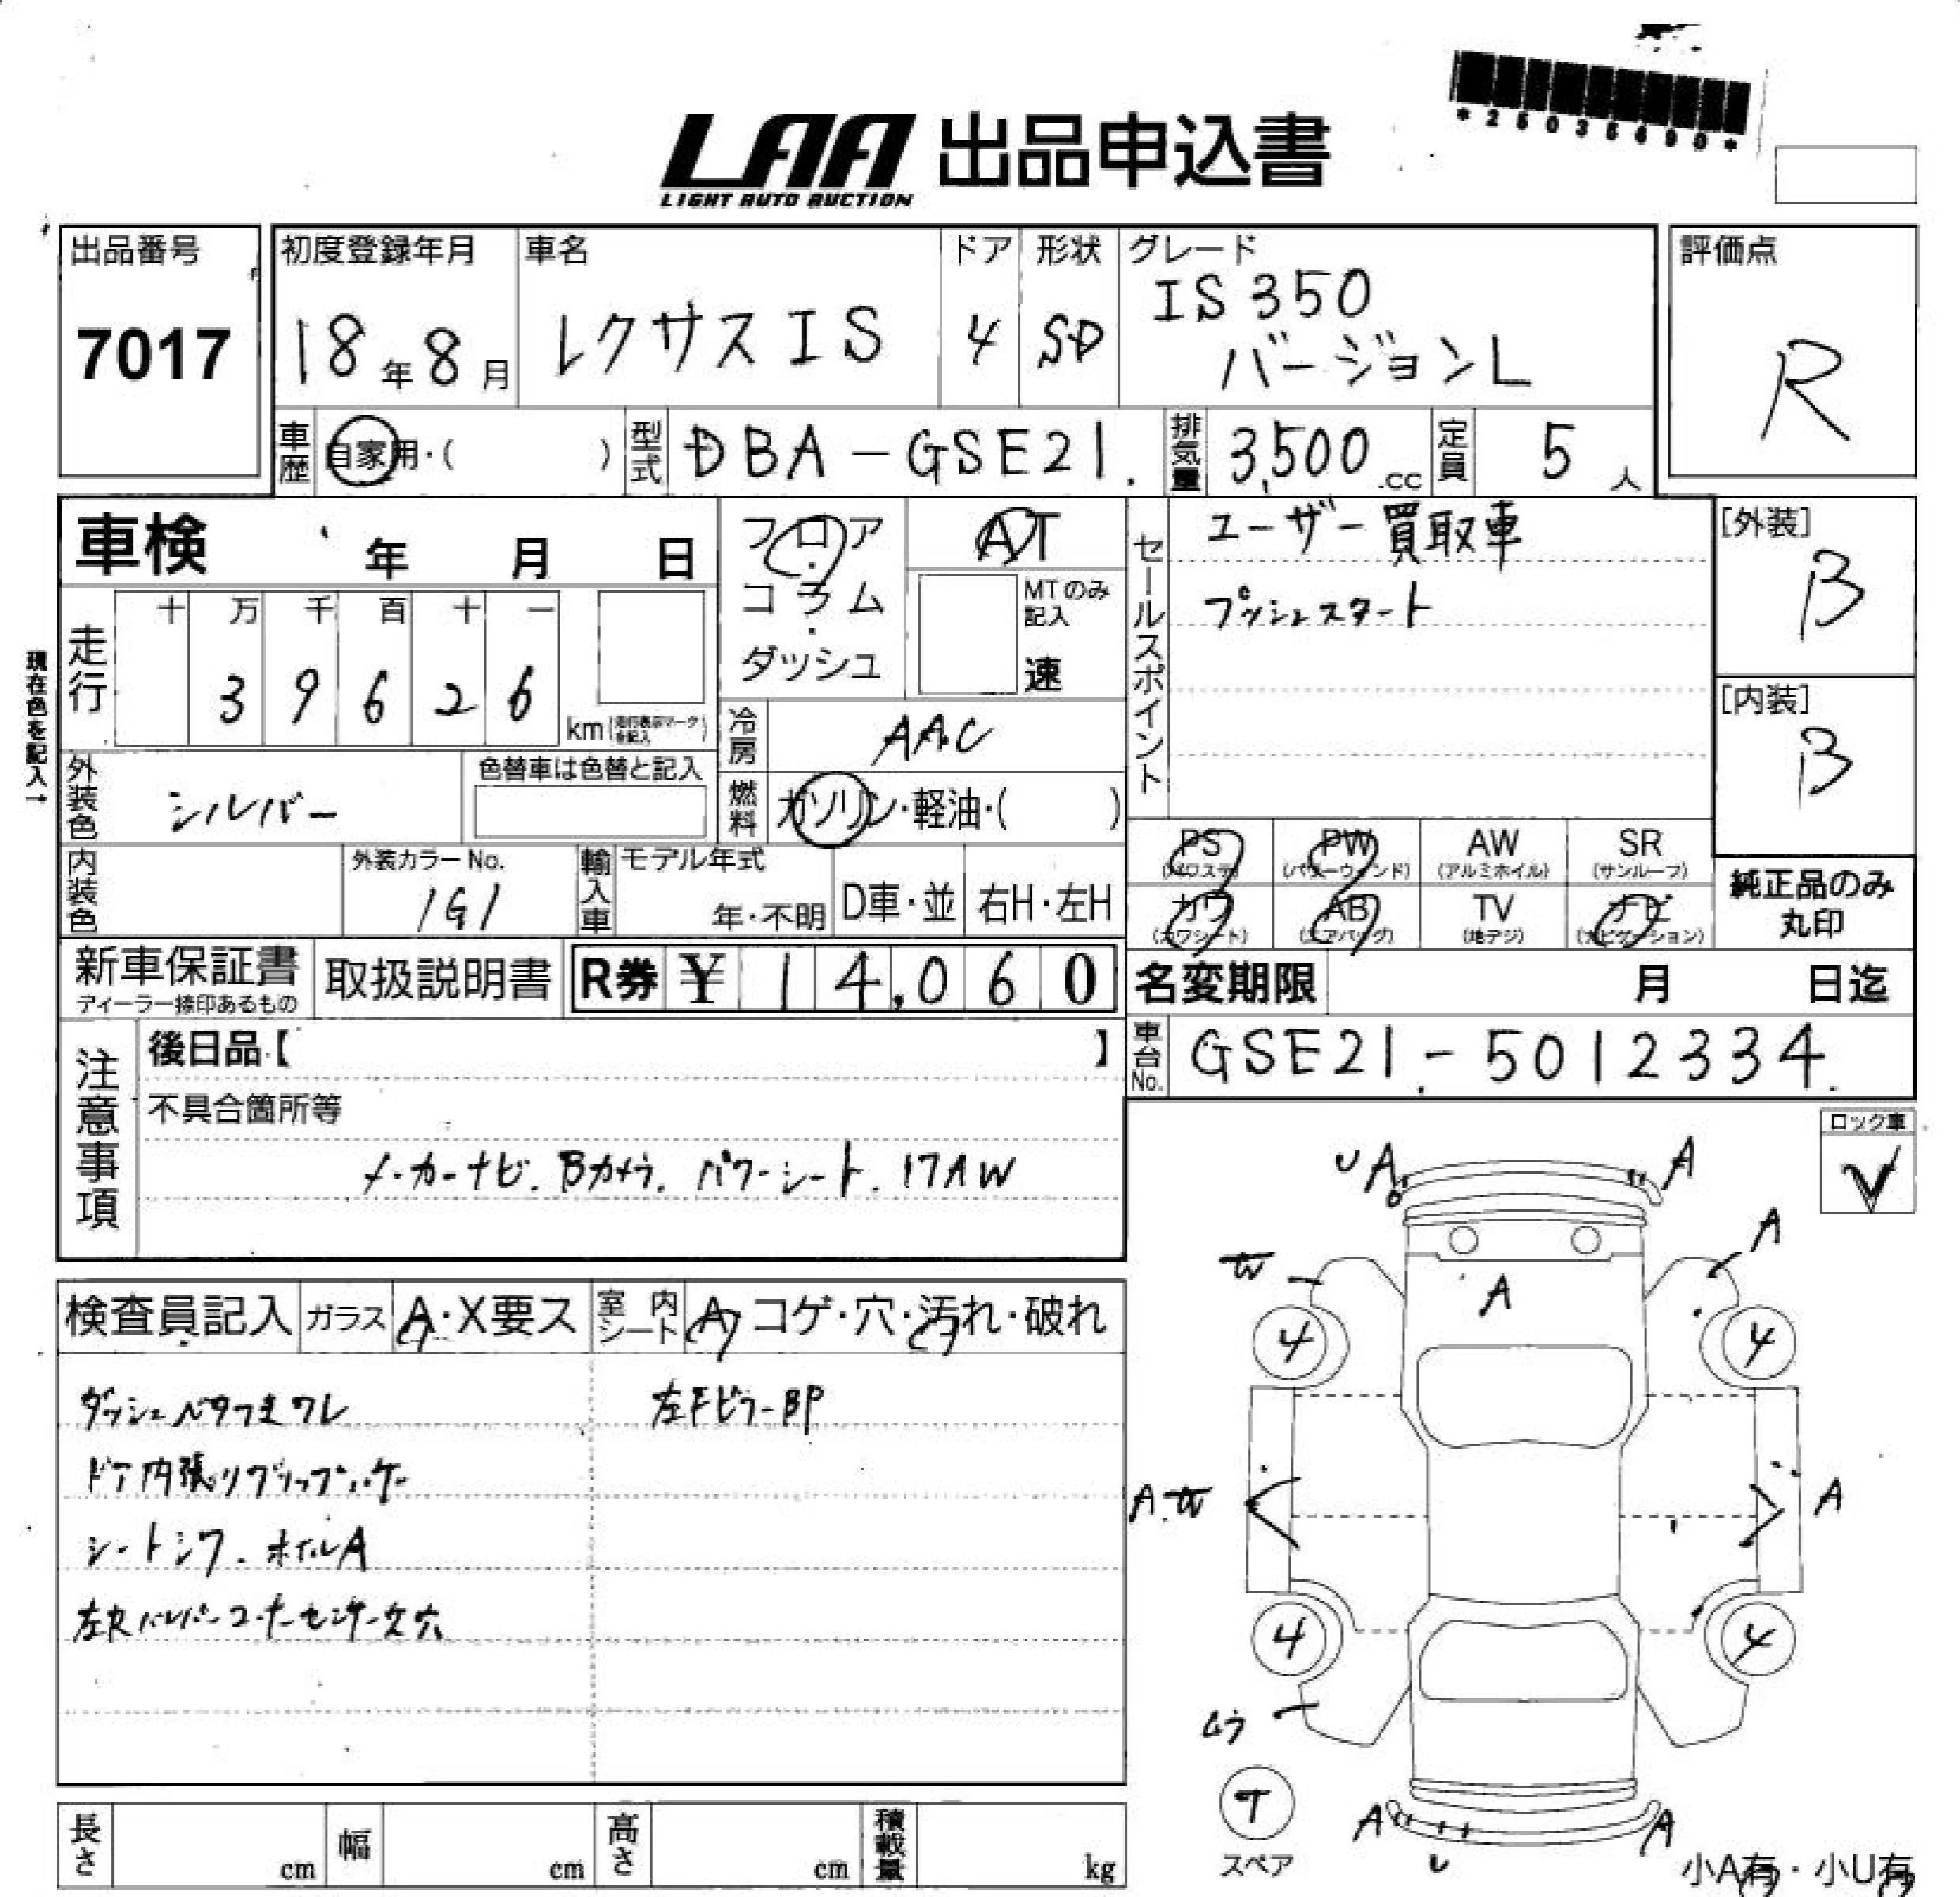 *25035690*
LAA 出品申込書
LIGHT AUTO AUCTION
出品番号
7017
初度登録年月
18年8月
車名
レクサスIS
ドア
4
形状
SD
グレード
IS350
バージョンL
評価点
R
車歴
自家用・( )
型式
DBA-GSE21
排気量
3,500.cc
定員
5人
車検 年 月 日
フロア・コラム・ダッシュ
AT
MTのみ記入
速
セールスポイント
ユーザー買取車
プッシュスタート
[外装]
B
[内装]
B
現在色を記入→
走行
十 万 千 百 十 一
3 9 6 2 6
km (走行表示マークを記入)
冷房
AAC
外装色
シルバー
色替車は色替と記入
燃料
ガソリン・軽油・( )
内装色
外装カラーNo.
1G1
輸入車
モデル年式
年・不明
D車・並
右H・左H
PS
(パワステ)
PW
(パワーウィンド)
AW
(アルミホイル)
SR
(サンルーフ)
カワ
(カワシート)
AB
(エアバッグ)
TV
(地デジ)
ナビ
(ナビゲーション)
純正品のみ
丸印
新車保証書
ディーラー捺印あるもの
取扱説明書
R券 ¥14,060
名変期限 月 日迄
車台No.
GSE21-5012334
注意事項
後日品【 】
不具合箇所等
メーカーナビ.Bカメラ.パワーシート.17AW
ロック車
✓
検査員記入
ガラス
A・X要ス
室内シート
A コゲ・穴・汚れ・破れ
ダッシュベタつきワレ
左FピラーBP
ドア内張りグリップハゲ
シートシワ.ホイルA
左Rバンパーコーナーセンサー欠穴
U A
A
W
A
A
4
4
A.W
A
4
4
ムラ
T
スペア
A
A
U
小A有・小U有
長さ cm
幅 cm
高さ cm
積載量 kg